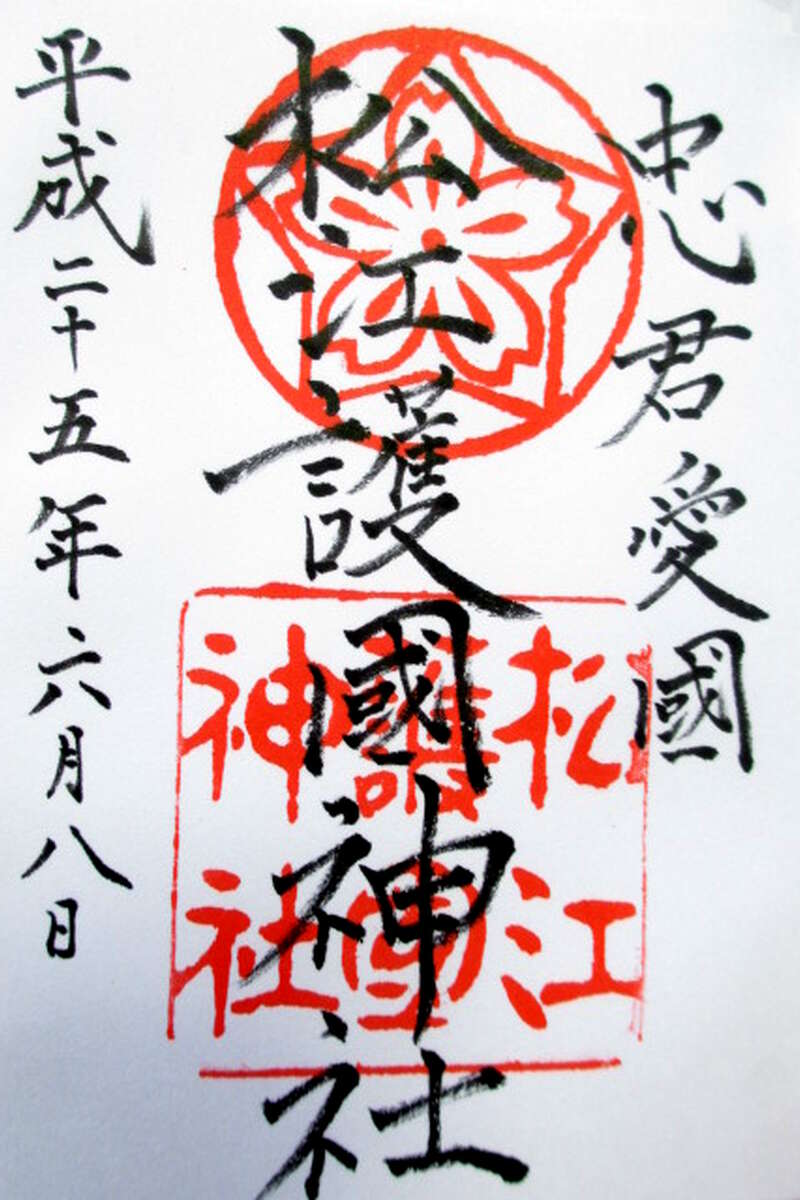 忠君愛國
松江護國神社
松江
護國
神社
平成二十五年六月八日